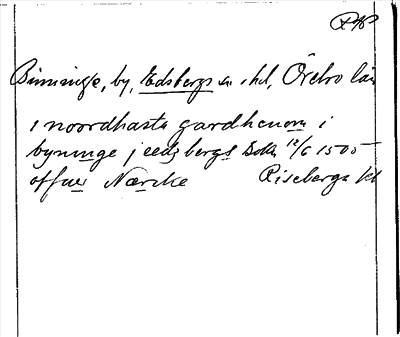 Binninge, by, Edsbergs sn o. hd, Örebro län
i noordhasta gardhenom i
byninge j eedzbergs Sokn 12/6 1500
offuer Nærcke Riseberga kl